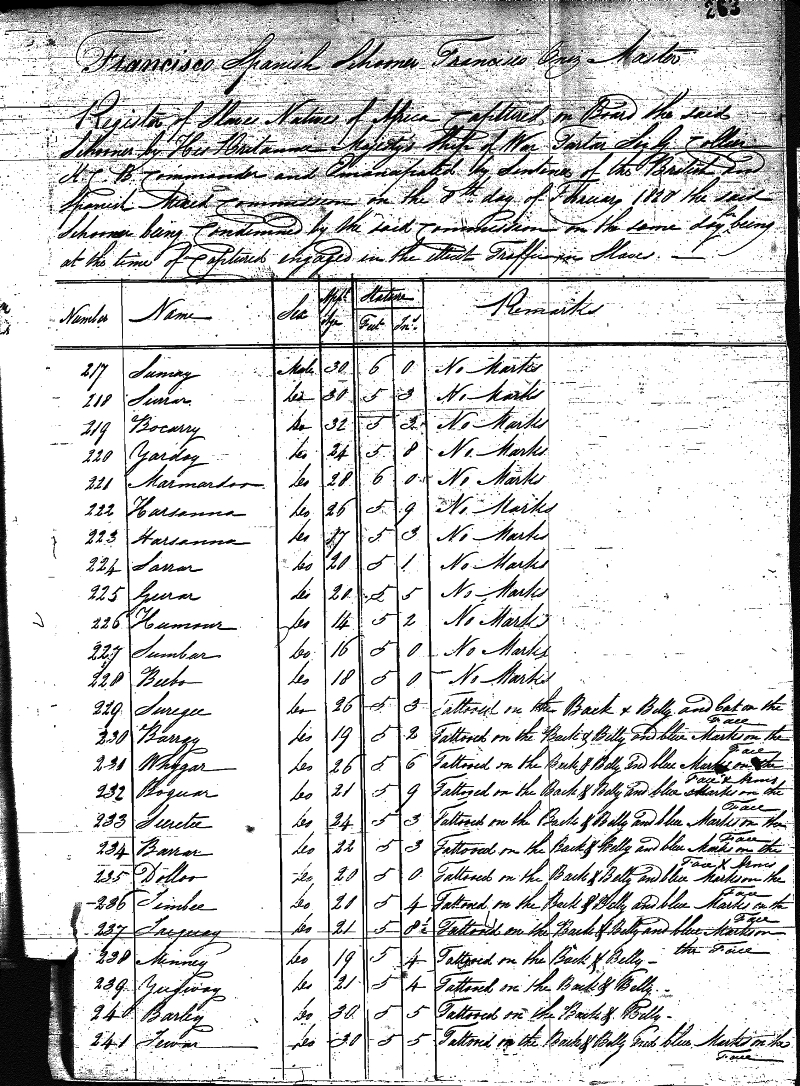 263
Francisco Spanish Schooner Francisco Master
Register of Slaves Natives of Africa captured on Board the said
Schooner by His Britannic Majesty's Ship of War Tartar Sir G. Collier
K.C.B Commander and Emancipated by Sentence of the British and
Spanish Mixed Commission on the 8th day of February 1820 the said
Schooner being Condemned by the said Commission on the same day being
at the time of captured engaged in the illicit Traffic in Slaves.
Number Name Sex Appt. Age Stature Remarks
Feet Ins.
217 Sumay Male 30 6 0 No Marks
218 Surrar Do 30 5 3 No Marks
219 Bocarry Do 32 5 3 No Marks
220 Yarday Do 24 5 8 No Marks
221 Marmardoo Do 28 6 0 No Marks
222 Harsanna Do 26 5 9 No Marks
223 Harsanna Do 17 5 3 No Marks
224 Sarrar Do 20 5 1 No Marks
225 Do 20 5 5 No Marks
226 Humour Do 14 5 2 No Marks
227 Sumbar Do 16 5 0 No Marks
228 Beebo Do 18 5 0 No Marks
229 Suregee Do 26 5 3 Tattooed on the Back & Belly and Cut on the Face
230 Barray Do 19 5 2 Tattooed on the Back & Belly and blue Marks on the Face
231 Whygar Do 26 5 6 Tattooed on the Back & Belly and blue Marks on the Face & Arms
232 Boguar Do 21 5 9 Tattooed on the Back & Belly and blue Marks on the Face
233 Suretee Do 24 5 3 Tattooed on the Back & Belly and blue Marks on the Face
234 Barrar Do 22 5 3 Tattooed on the Back & Belly and blue Mark on the Face & Arms
235 Dolloo Do 20 5 0 Tattooed on the Back & Belly and blue Marks on the Face
236 Simbee Do 20 5 4 Tattooed on the Back & Belly and blue Marks on the Face
237 Do 21 5 8½ Tattooed on the Back & Belly and blue Marks on
the Face
238 Minney Do 19 5 4 Tattooed on the Back & Belly
239 Do 21 5 4 Tattooed on the Back & Belly
240 Barley Do 30 5 5 Tattooed on the Back & Belly
241 Do 30 5 5 Tattooed on the Back & Belly and blue Marks on the Face